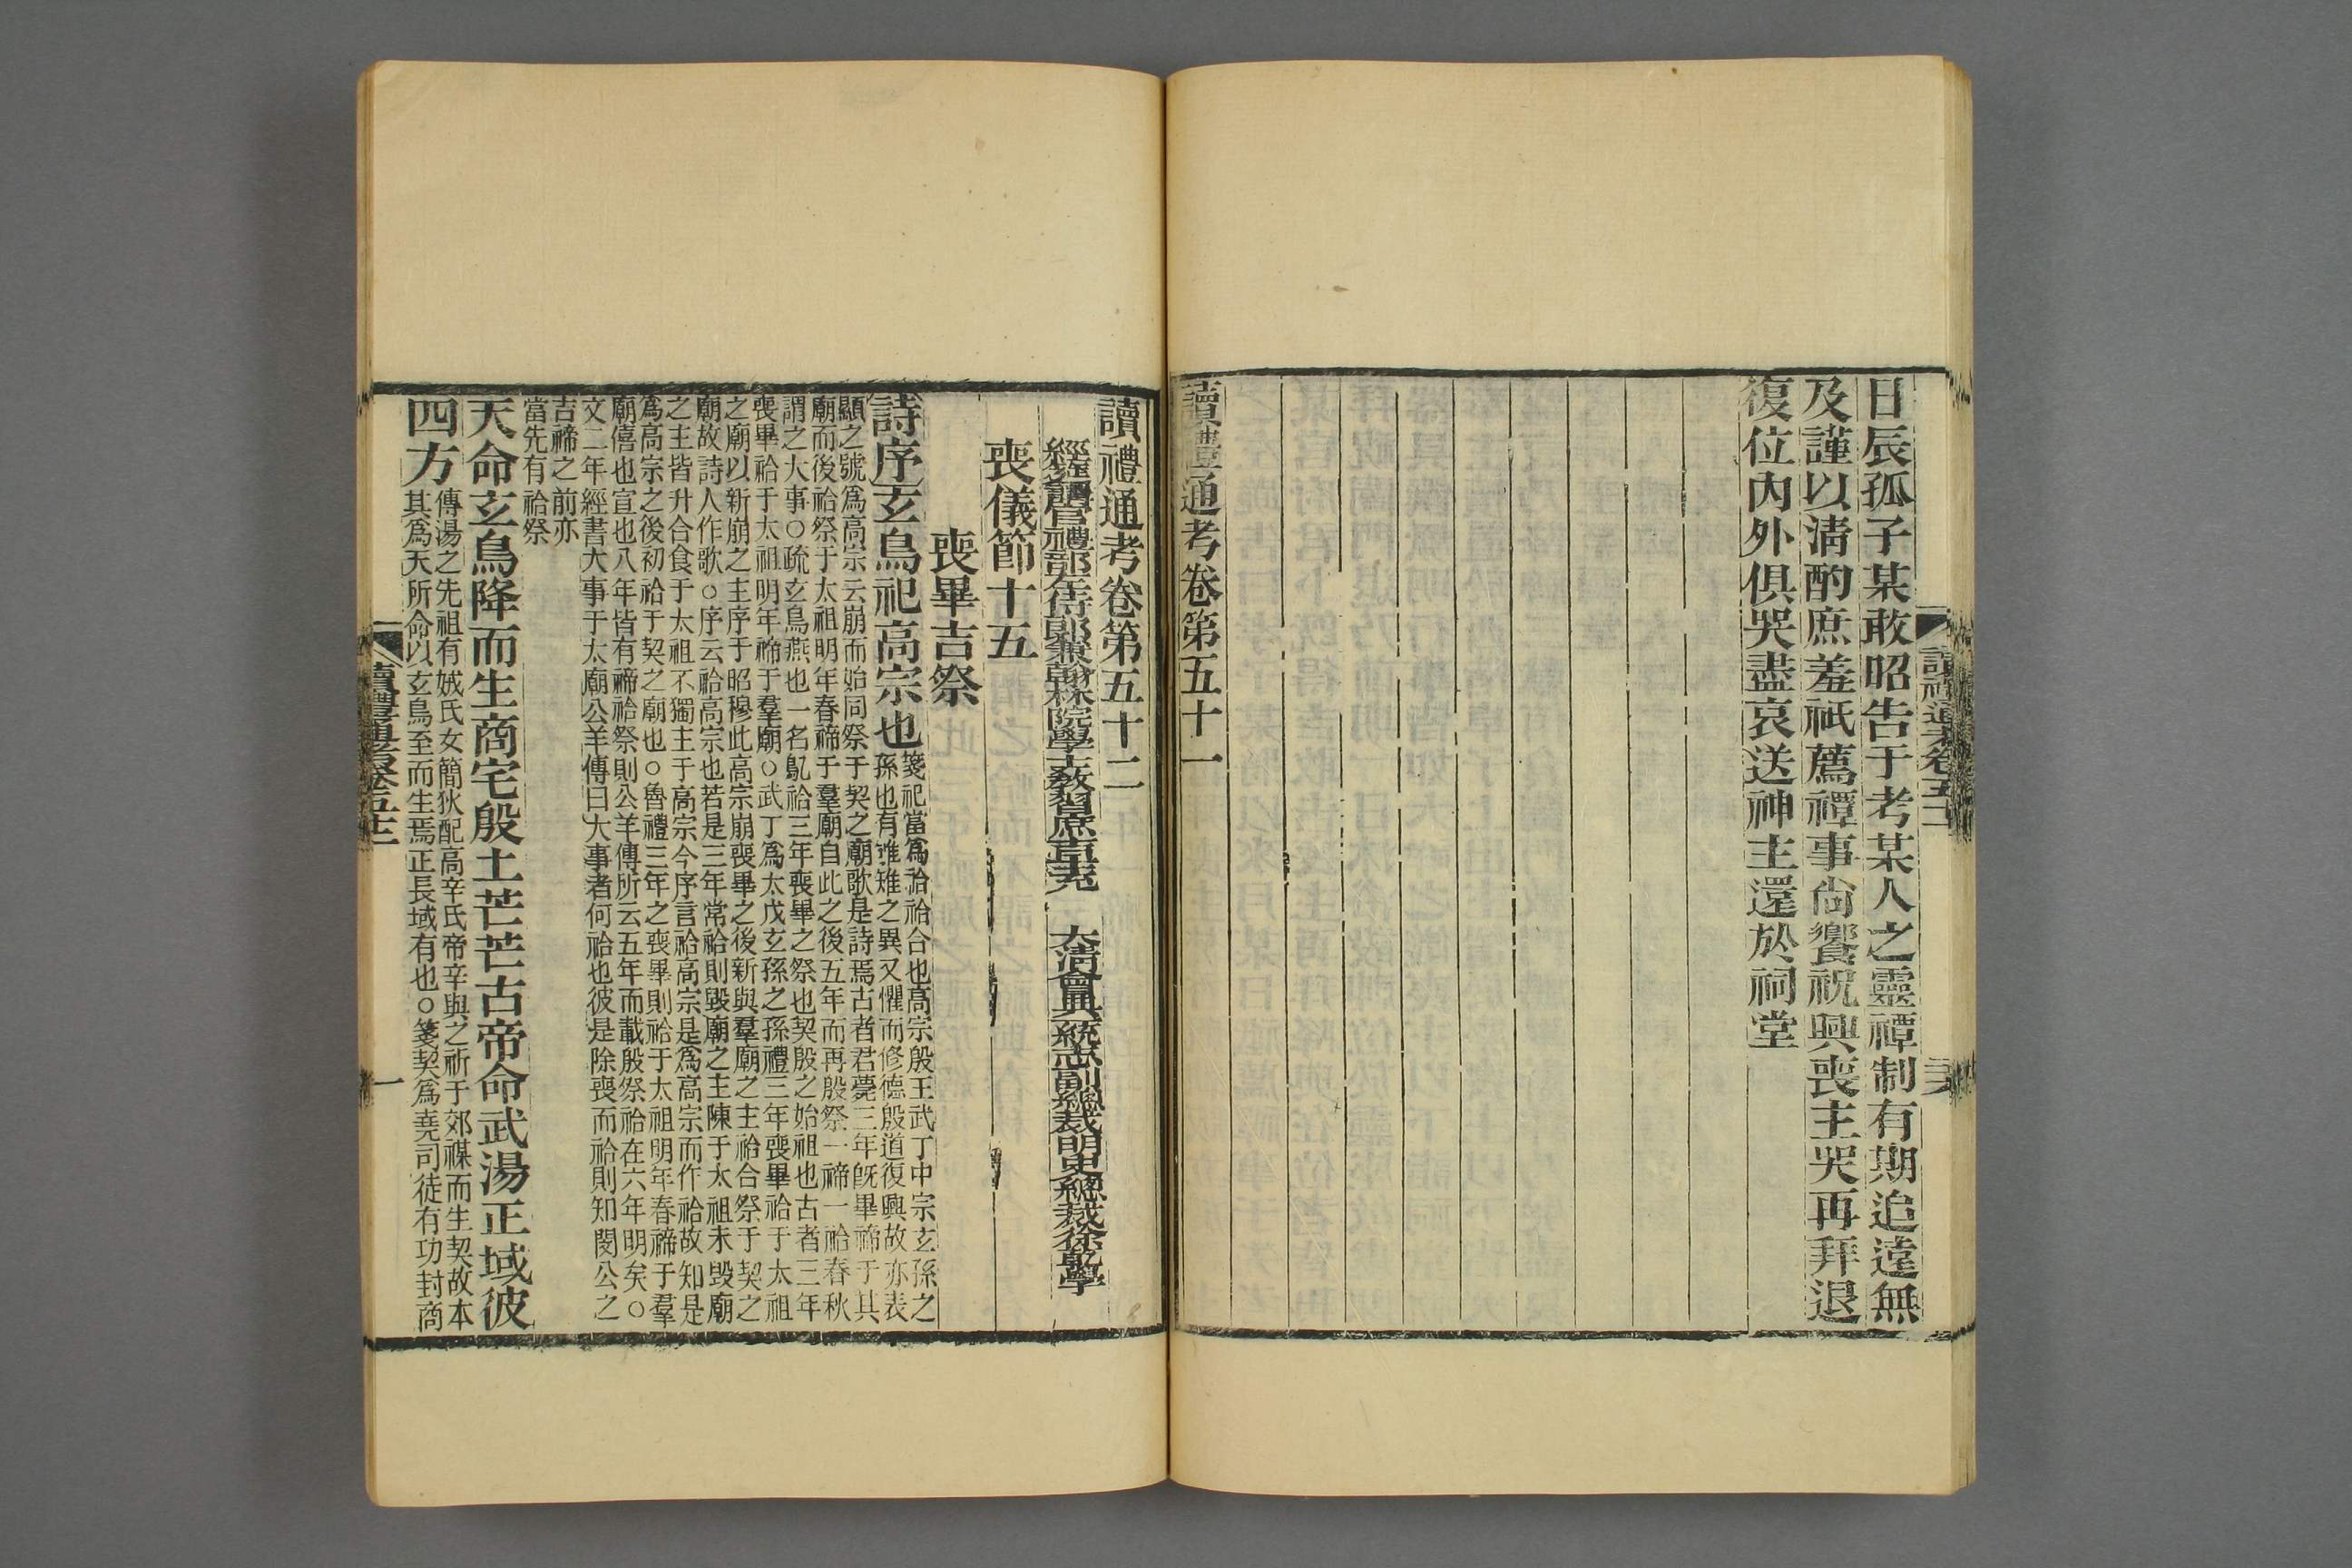 日辰孤子某敢昭告于考某人之靈禫制有期追遠無
及謹以清酌庶羞祇薦禫事尙饗祝興喪主哭再拜退
復位內外俱哭盡哀送神主還於祠堂
讀禮通考卷第五十一
讀禮通考卷第五十二
經筵講官禮部左侍郎兼翰林院學士教習庶吉士充 大淸會典一統志副總裁明史總裁徐乾學
喪儀節十五
喪畢吉祭
詩序玄鳥祀高宗也
箋祀當爲祫祫合也高宗殷王武丁中宗玄孫之
孫也有雊雉之異又懼而修德殷道復興故亦表
顯之號爲高宗云崩而始同祭于契之廟歌是詩焉古者君薨三年旣畢禘于其
廟而後祫祭于太祖明年春禘于羣廟自此之後五年而再殷祭一禘一祫春秋
謂之大事○疏玄鳥燕也一名鳦祫三年喪畢之祭也契殷之始祖也古者三年
喪畢祫于太祖明年禘于羣廟○武丁爲太戊玄孫之孫禮三年喪畢祫于太祖
之廟以新崩之主序于昭穆此高宗崩喪畢之後新與羣廟之主祫合祭于契之
廟故詩人作歌○序云祫高宗也若是三年常祫則毀廟之主陳于太祖未毀廟
之主皆升合食于太祖不獨主于高宗今序言祫高宗是爲高宗而作祫故知是
爲高宗之後初祫于契之廟也○魯禮三年之喪畢則祫于太祖明年春禘于羣
廟僖也宣也八年皆有禘祫祭則公羊傳所云五年而載殷祭祫在六年明矣○
文二年經書大事于太廟公羊傳曰大事者何祫也彼是除喪而祫則知閔公之
吉禘之前亦
當先有祫祭
天命玄鳥降而生商宅殷土芒芒古帝命武湯正域彼
四方
傳湯之先祖有娀氏女簡狄配高辛氏帝辛與之祈于郊禖而生契故本
其爲天所命以玄鳥至而生焉正長域有也○箋契爲堯司徒有功封商
讀禮通考卷五十二
一